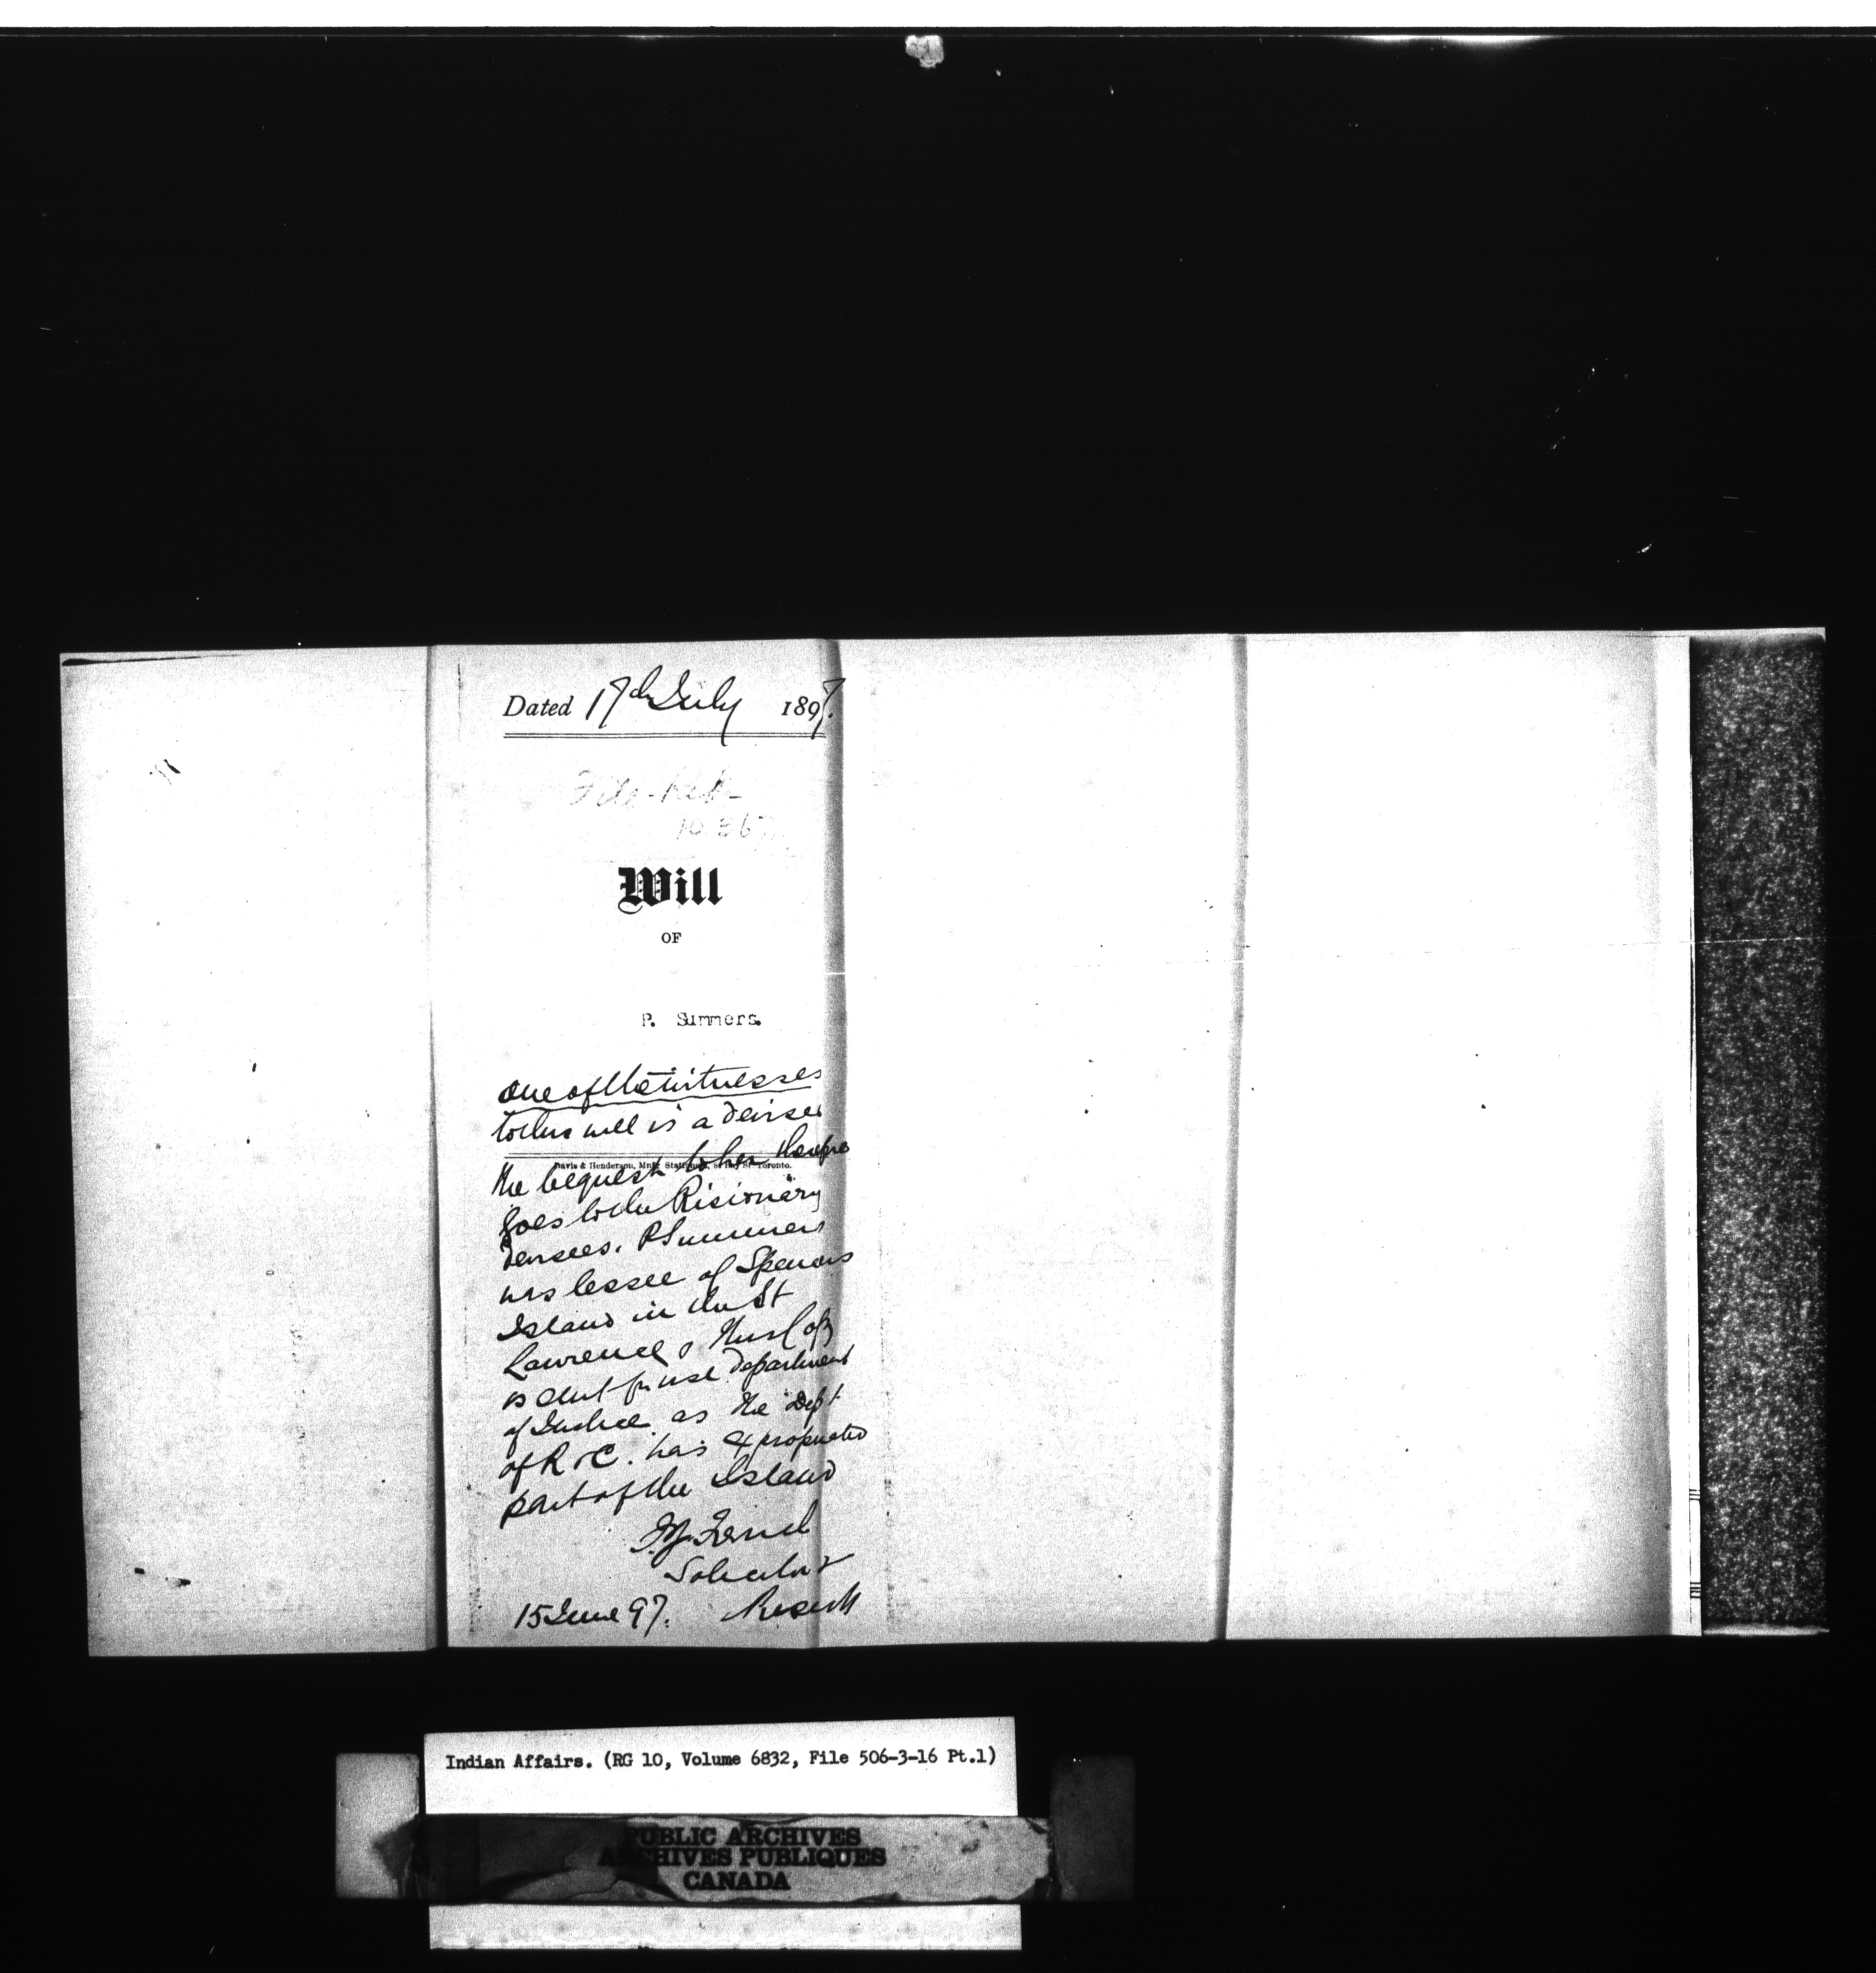 Dated 17th July 1897.
File
Will
OF
P. Summers.
One of the witnesses
to this will is a devisee
Davis & Henderson, Mnfg Stationers, Bay St. Toronto.
the bequest to her therefore
goes to the Risionary
devisees. P Summers
was lessee of Spencers
Island in the St
Lawrence, this Copy
is sent for use Department
of Justice as the Dept
of R & C. has expropriated
part of the Island
Solicitor
15 June 97. Prescott
Indian Affairs. (RG 10, Volume 6832, File 506-3-16 Pt.1)
PUBLIC ARCHIVES
ARCHIVES PUBLIQUES
CANADA